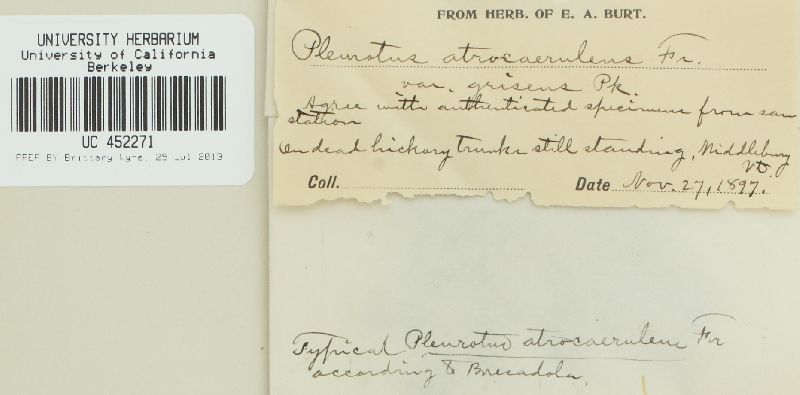 UNIVERSITY HERBARIUM
University of California
Berkeley
UC 452271
PREP BY Brittany Kyre, 25 Jul 2013
FROM HERB. OF E. A. BURT.
Pleurotus atrocaeruleus Fr.
var. griseus Pk.
Agree with authenticated specimens from same
station
On dead hickory trunks still standing, Middlebury
Vt.
Coll. Date Nov. 27, 1897.
Typical Pleurotus atrocaeruleus Fr
according to Bresadola.